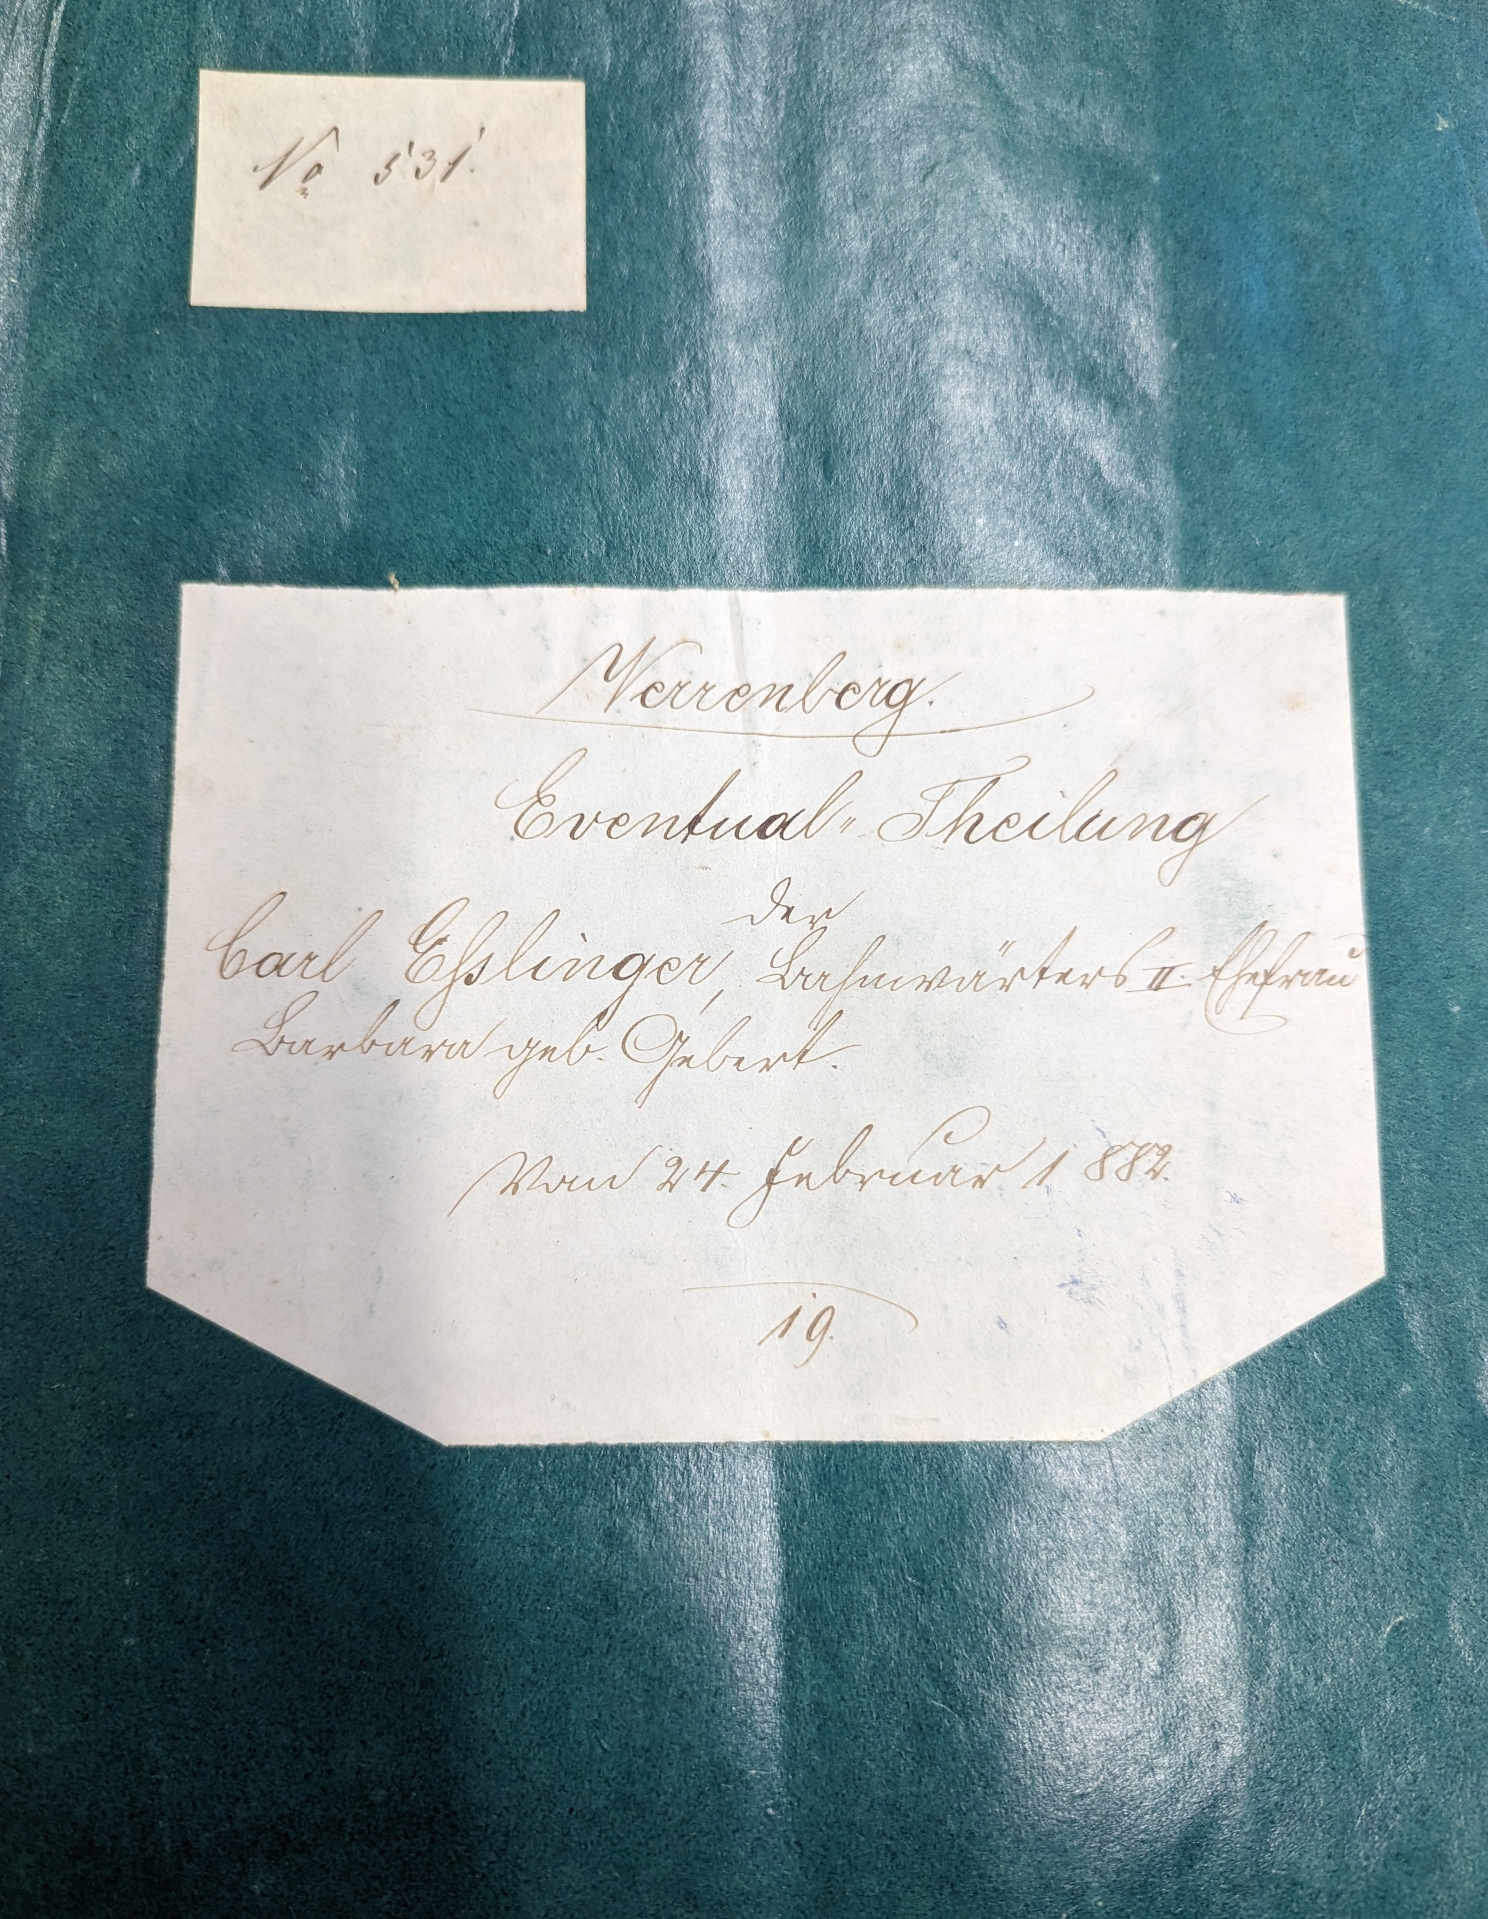 No 531.
Verrenberg.
Eventual- Theilung
der
Carl Eßlinger, Bahnwärters II. Ehefrau
Barbara geb. Gebert.
Vom 24. Februar 1882.
19.